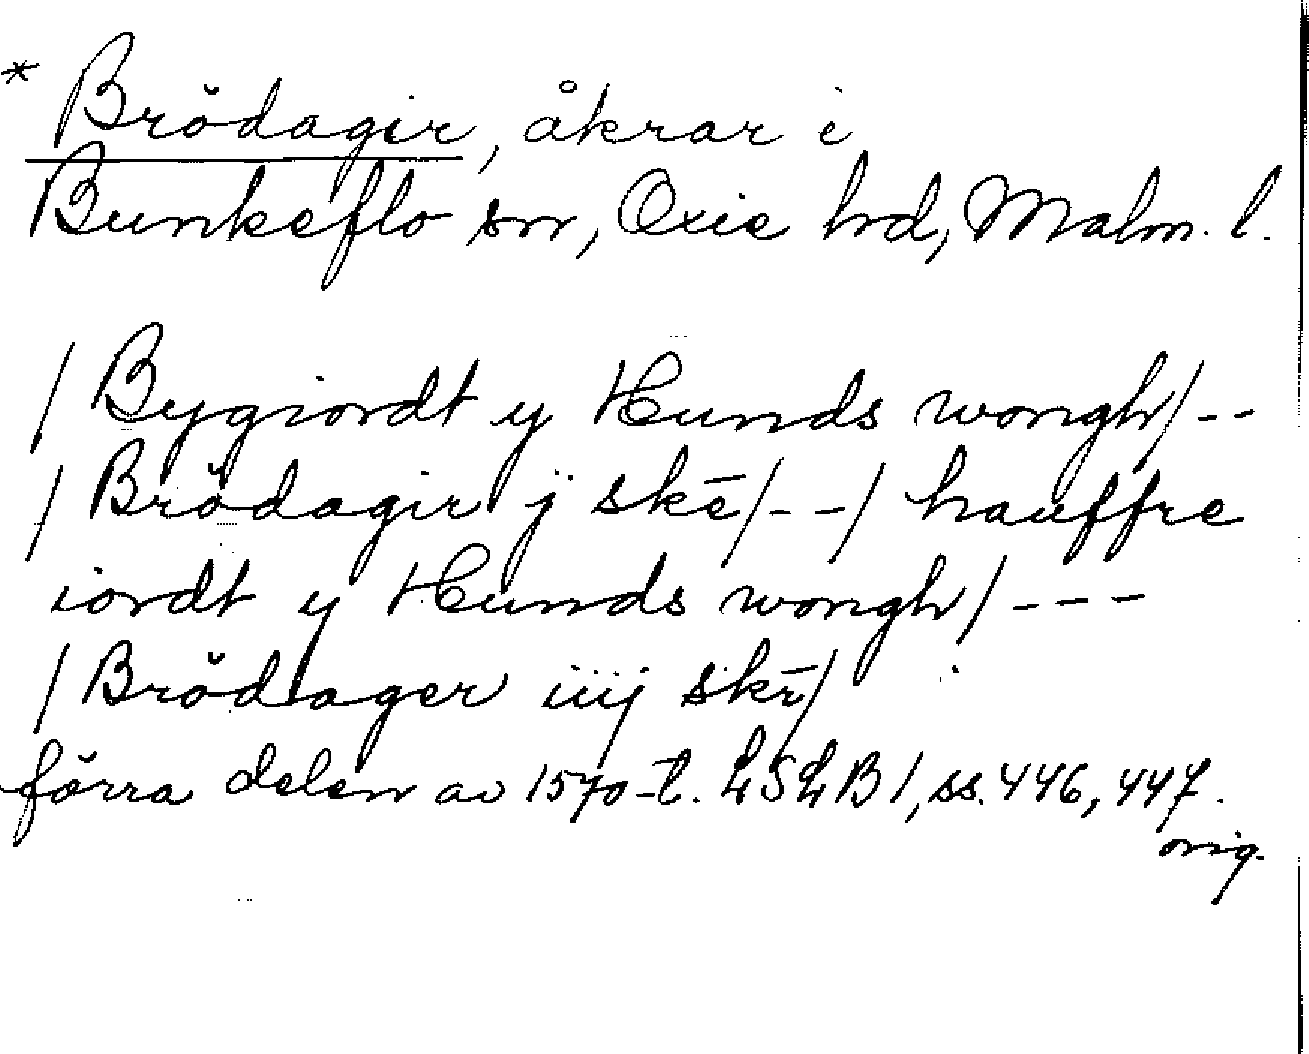 * Brödagir, åkrar i
Bunkeflo sn, Oxie hd, Malm. l.
/ Bygiordt y Hunds wongh/--
/ Brödagir j skē/--/ hauffre
iordt y Hunds wongh/---
/ Brödager iiij skē/
förra delen av 1570-t. LSLB 1, ss. 446, 447.
orig.